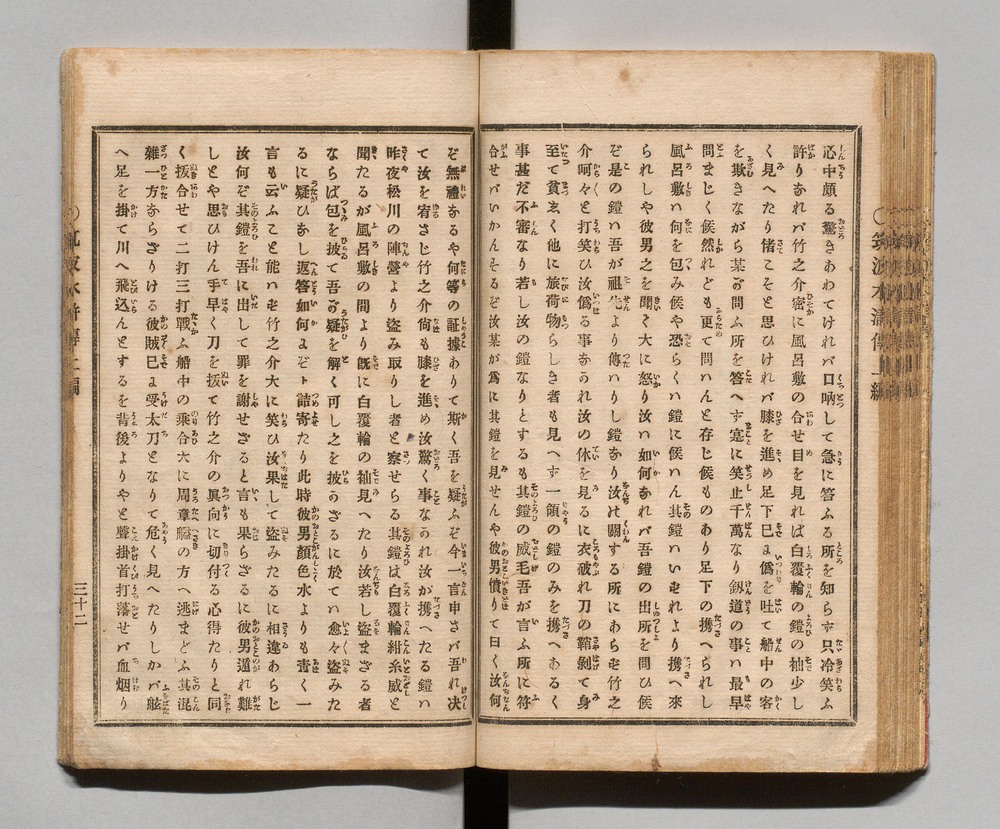 心中頗る驚きあわてけれバ口吶して急に答ふる所を知らず只冷笑ふ
許りなれバ竹之介密に風呂敷の合せ目を見れば白覆輪の鎧の袖少し
く見へたり偖こそと思ひけれバ膝を進め足下巳ま偽を吐て船中の客
を欺きながら某が問ふ所を答へず寔に笑止千萬なり劔道の事ハ最早
問まじく候然れども更て問ハんと存じ候ものあり足下の携へられし
風呂敷ハ何を包み候や恐らくハ鎧に候ハん其鎧ハいせれより携へ來
られしや彼男之を聞く大に怒り汝ハ如何なれバ吾鎧の出所を問ひ候
ぞ是の鎧ハ吾が祖先より傳ハりし鎧なり汝が關する所にあらせ竹之
介呵々と打笑ひ汝僞る事なのれ汝の体を見るに衣破れ刀の鞘剝て身
至て貧ゑく他に旅荷物らしき者も見へず一領の鎧のみを携へあるく
事甚だ不審なり若し汝の鎧なりとするも其鎧の威毛吾が言ふ所に符
合せバいかんそるぞ汝某が爲に其鎧を見せんや彼男憤りて曰く汝何
ぞ無禮なるや何等の証據ありて斯く吾を疑ふぞ今一言申さバ吾れ决
て汝を宥さじ竹之介尙も膝を進め汝驚く事なのれ汝が携へたる鎧ハ
昨夜松川の陣營より盜み取りし者と察せらる其鎧は白覆輪紺糸威と
聞たるが風呂敷の間より旣に白覆輪の袖見へたり汝若し盜まざる者
ならば包を披て吾が疑を解く可し之を披かざるに於てハ愈々盜みた
るに疑ひなし返答如何まぞト詰寄たり此時彼男顏色水よりも靑く一
言も云ふこと能ハせ竹之介大に笑ひ汝果して盜みたるに相違あらじ
汝何ぞ其鎧を吾に出して罪を謝せざると言も果らざるに彼男遁れ難
しとや思ひけん手早く刀を拔て竹之介の眞向に切付る心得たりと同
く拔合せて二打三打戰ふ船中の乘合大に周章艫の方へ逃まどふ其混
雜一方ならざりける彼賊巳ま受太刀となりて危く見へたりしかバ舷
へ足を掛て川へ飛込んとするを背後よりやと聲掛首打落せバ血烟り
三十二